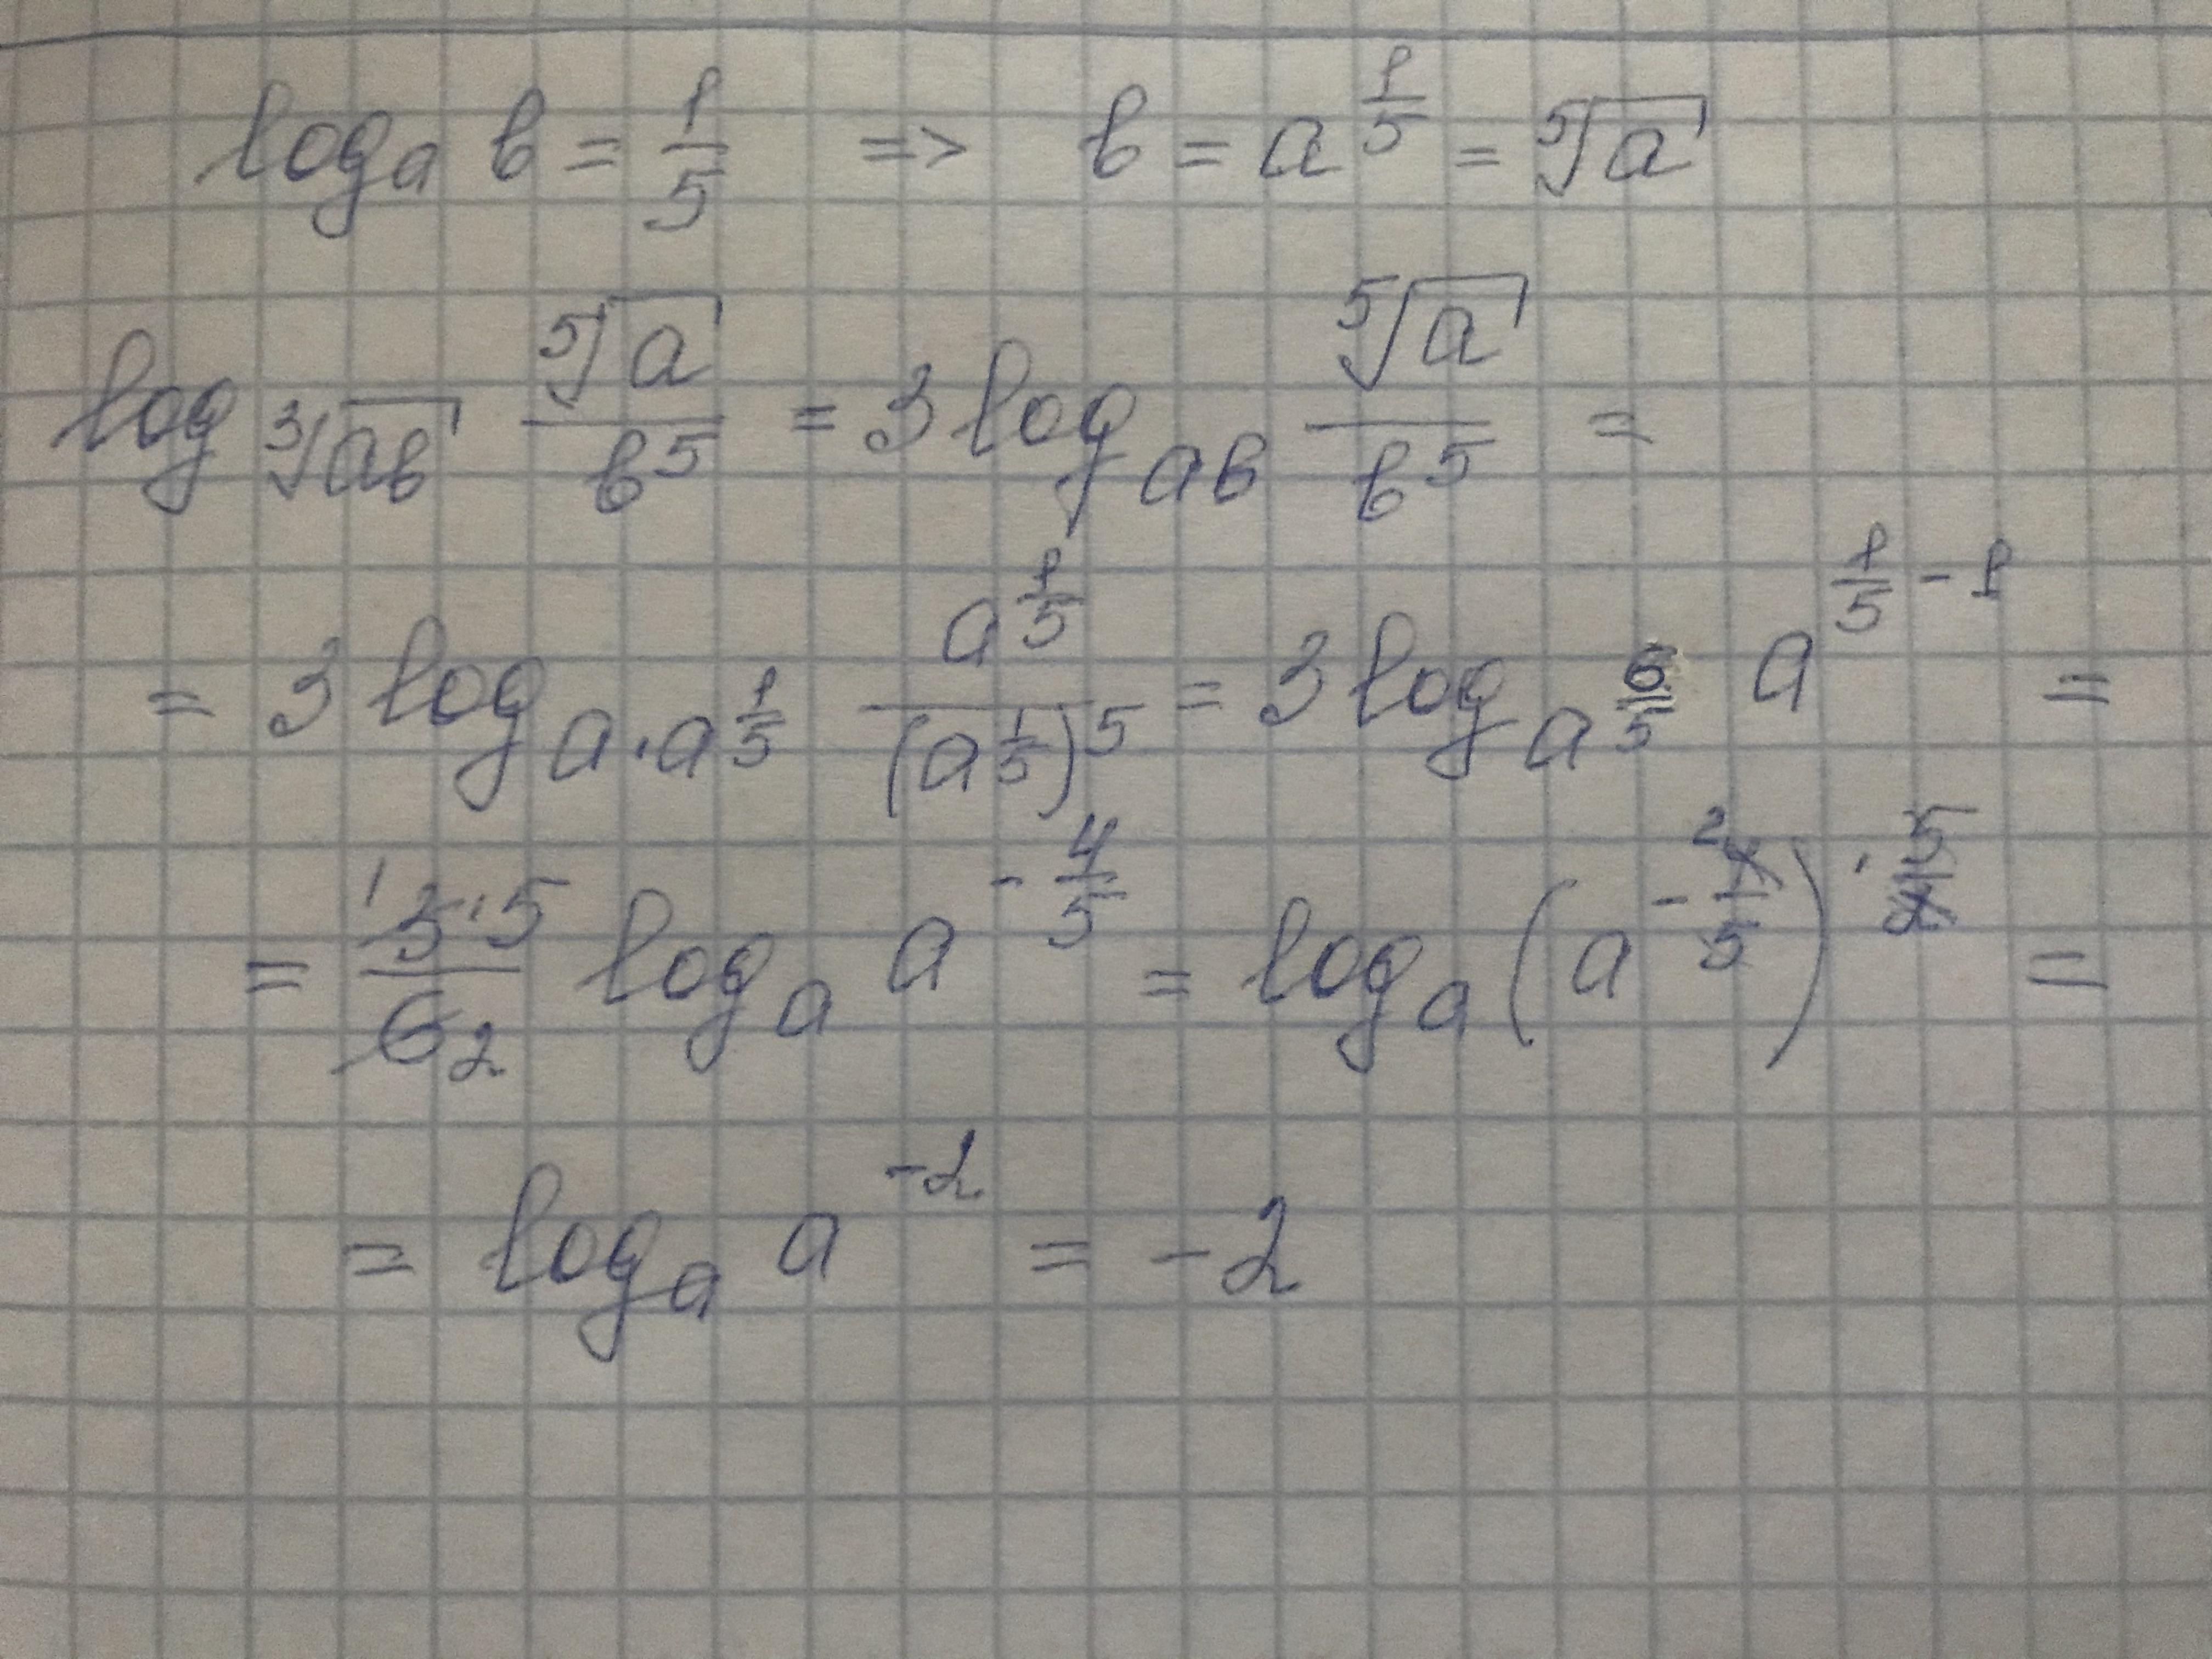 logₐ b = 1/5 => b = a^(1/5) = ⁵√a
log_(³√(ab)) (⁵√a)/(b⁵) = 3 log_(ab) (⁵√a)/(b⁵) =
= 3 log_(a·a^(1/5)) (a^(1/5))/((a^(1/5))⁵) = 3 log_(a^(6/5)) a^(1/5 - 1) =
= (¹3·5)/(6₂) logₐ a^(-4/5) = logₐ (a^(-²4/5))^(·5/2) =
= logₐ a^(-2) = -2